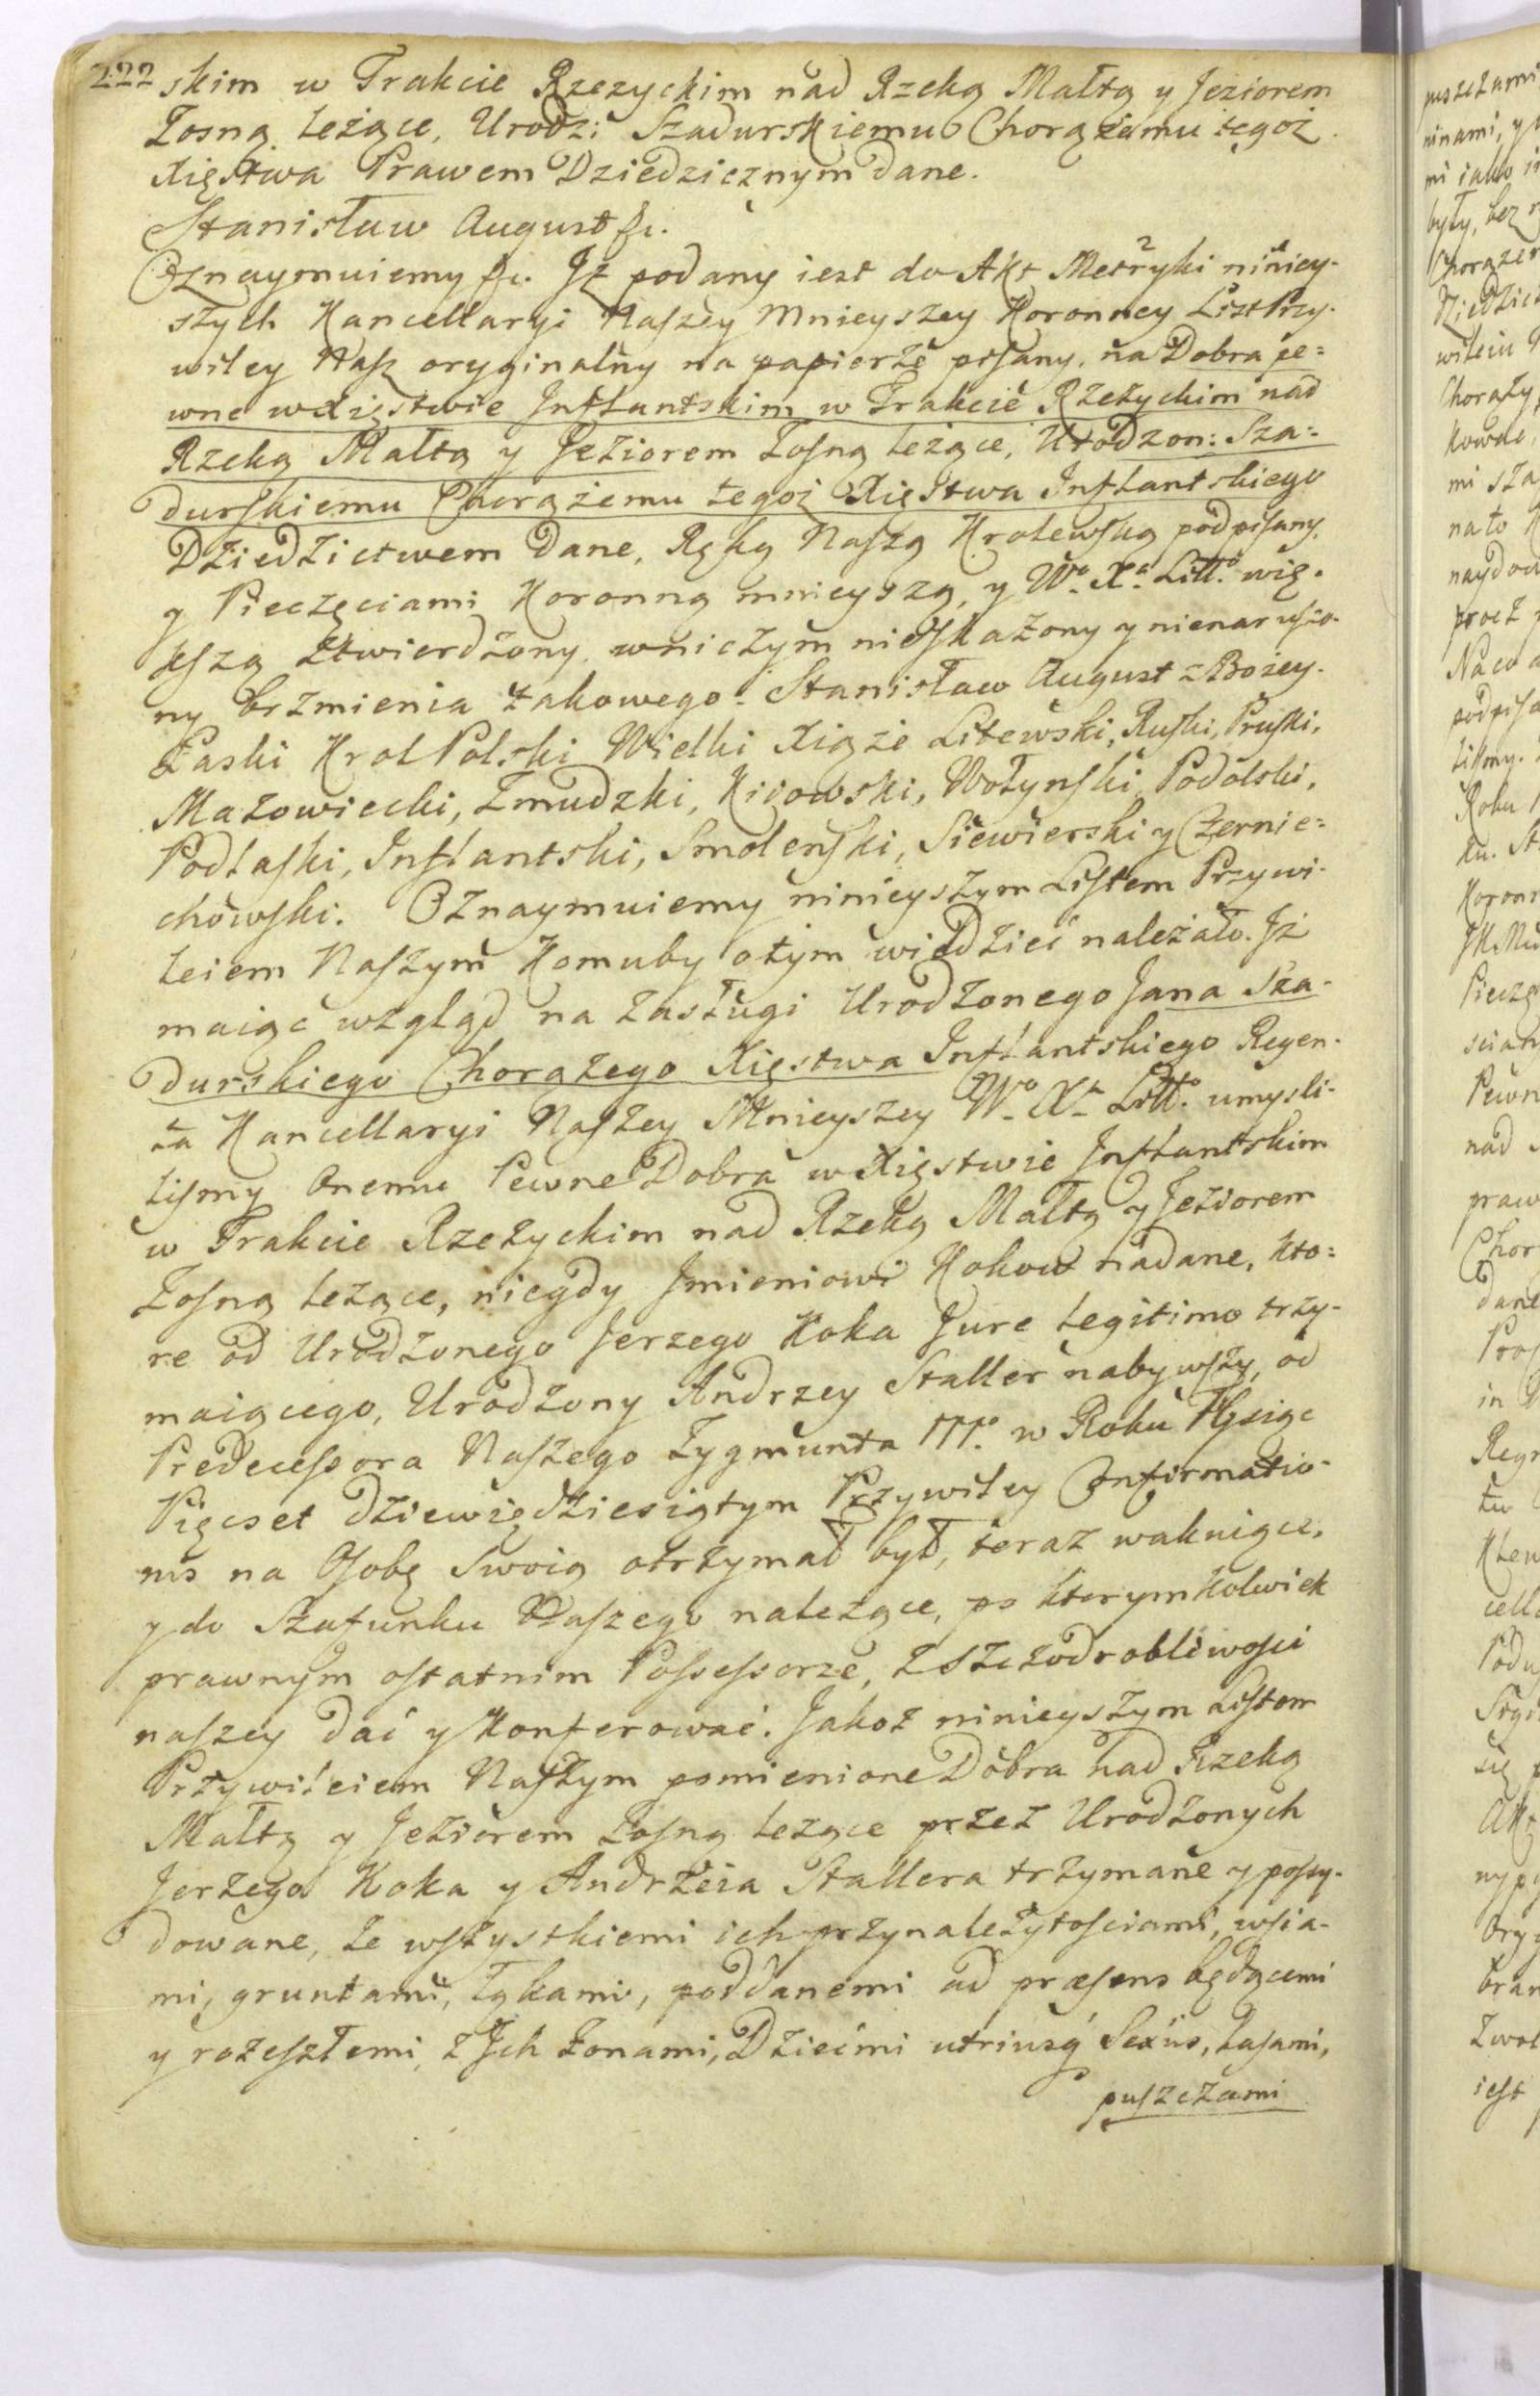 222 skim w Trakcie Rzezyckim nad Rzeką Małtą y Jeziorem
Zosną leżące, Urodz: Szadurskiemu Chorążemu tegoż
Xięstwa Prawem Dziedzicznym dane.
Stanisław August &c.
Oznaymuiemy &c. Iż podany iest do Akt Metryki niniey-
szych Kancellaryi Naszey Mnieyszey Koronney List Przy-
wiley Nasz oryginalny na papierze pisany, na Dobra pe=
wne w Xięstwie Inflantskim w Trakcie Rzeżyckim nad
Rzeką Małtą y Jeziorem Zosną leżące, Urodzon: Sza=
durskiemu Chorążemu tegoż Xięstwa Inflantskiego
Dziedzictwem dane, Ręką Naszą Krolewską podpisany,
y Pieczęciami Koronną mnieyszą, y Wo. Xa. Litto. wię-
kszą ztwierdzony, wniczym nieskażony y nienaruszo-
ny brzmienia takowego. Stanisław August z Bożey
Łaski Krol Polski Wielki Xiąże Litewski, Ruski, Pruski,
Mazowiecki, Zmudzki, Kiiowski, Wołynski, Podolski,
Podlaski, Inflantski, Smolenski, Siewierski y Czernie=
chowski. Oznaymuiemy ninieyszym Listem Przywi-
leiem Naszym Komuby otym wiedzieć należało. Iż
maiąc wzgląd na zasługi Urodzonego Jana Sza-
durskiego Chorążego Xięstwa Inflantskiego Regen-
ta Kancellaryi Naszey Mnieyszey Wo. Xa. Litto. umysli-
lismy Onemu Pewne Dobra w Xięstwie Inflantskim
w Trakcie Rzezyckim nad Rzeką Małtą y Jeziorem
Zosną leżące, niegdy Imieniowi Kokow nadane, kto=
re od Urodzonego Jerzego Koka Jure legitimo trzy-
maiącego, Urodzony Andrzey Staller nabywszy, od
Predecessora Naszego Zygmunta IIIo. w Roku Tysiąc
Pięcset dziewiędziesiątym Przywiley Confirmatio-
nis na Osobę Swoią otrzymał był, teraz wakuiące,
y do Szafunku Naszego należące, po ktorymkolwiek
prawnym ostatnim Possessorze, z szczodrobliwosci
naszey dać y Konferować. Jakoż ninieyszym Listem
Przywileiem Naszym pomienione Dobra nad Rzeką
Małtą y Jeziorem Zosną leżące przez Urodzonych
Jerzego Koka y Andrzeia Stallera trzymane y possy-
dowane, ze wszystkiemi ich przynależytosciami, wsia-
mi, gruntami, łąkami, poddanemi ad præsens będącemi
y rozeszłemi, z Ich żonami, Dziećmi utriusq Sexûs, lasami,
puszczami